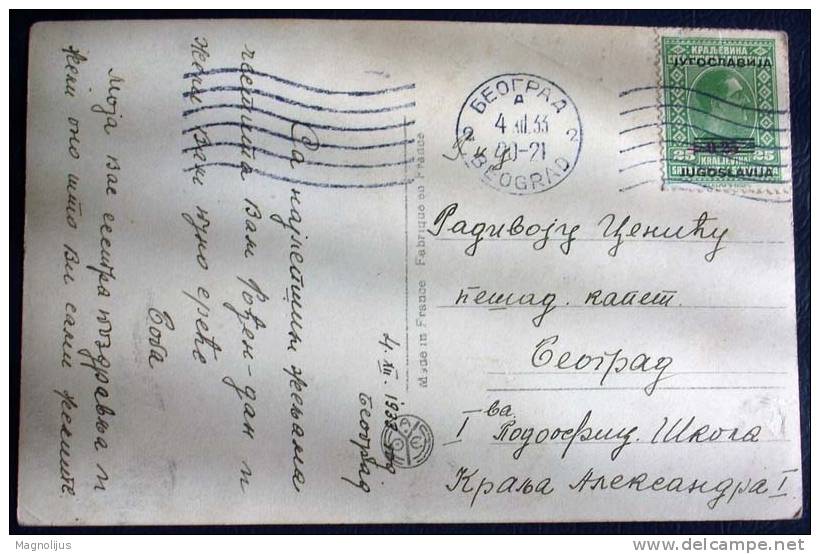 КРАЉЕВИНА
ЈУГОСЛАВИЈА
25 КРАЉЕВИНА 25
JUGOSLAVIJA
БЕОГРАД
4 XII 33
20-21
2 2
BEOGRAD
Радивоју Ценићу
пешад. капет.
Београд
I ва Подофиц. Школа
Краља Александра I
Made in France Fabriqué en France
4. XII. 1933 год
Београд
Са најлепшим жељама
честита Вам Рођен-дан и
жели Вам пуно среће
Моја Вас сестра поздравља и
жели оно што Ви сами желите.
Magnolijus
www.delcampe.net